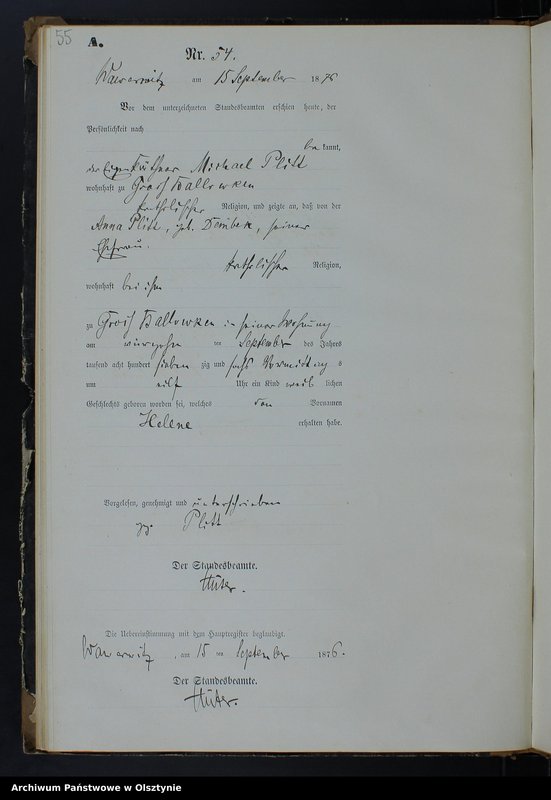 55
A.
Nr. 54.
Wawerwitz am 15 September 1876
Vor dem unterzeichneten Standesbeamten erschien heute, der
Persönlichkeit nach
be kannt,
der Eigenkäthner Michael Plitt
wohnhaft zu Groß Ballowken
katholischer Religion, und zeigte an, daß von der
Anna Plitt, geb. Dembek, seiner
Ehefrau.
katholischer Religion,
wohnhaft bei ihm
zu Groß Ballowken in seiner Wohnung
am ten September des Jahres
tausend acht hundert sieben zig und sechs Vormittag s
um eilf Uhr ein Kind weib lichen
Geschlechts geboren worden sei, welches den Vornamen
Helene erhalten habe.
Vorgelesen, genehmigt und unterschrieben
gz. Plitt
Der Standesbeamte.
Hüter.
Die Uebereinstimmung mit dem Hauptregister beglaubigt.
Wawerwitz, am 15 ten September 1876.
Der Standesbeamte.
Hüter.
Archiwum Państwowe w Olsztynie